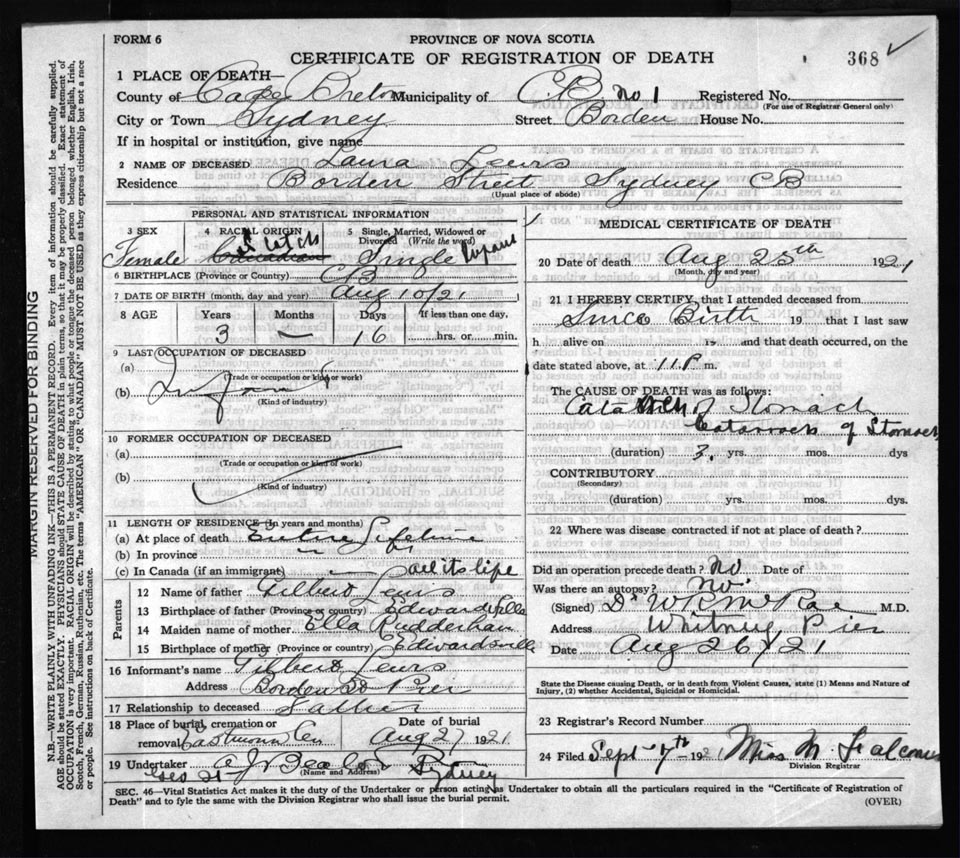 FORM 6
PROVINCE OF NOVA SCOTIA
CERTIFICATE OF REGISTRATION OF DEATH
368 ✓
1 PLACE OF DEATH—
County of Cape Breton Municipality of C B No 1 Registered No.
(For use of Registrar General only)
City or Town Sydney Street Borden House No.
If in hospital or institution, give name
2 NAME OF DECEASED Laura Lewis
Residence Borden Street Sydney C B
(Usual place of abode)
PERSONAL AND STATISTICAL INFORMATION
3 SEX 4 RACIAL ORIGIN 5 Single, Married, Widowed or Divorced (Write the word)
Female Canadian Scotch Single
6 BIRTHPLACE (Province or Country) C B
7 DATE OF BIRTH (month, day and year) Aug 10/21
8 AGE Years Months Days If less than one day,
3 — 16 hrs. or min.
9 LAST OCCUPATION OF DECEASED
(a)
(Trade or occupation or kind of work)
(b) Infant
(Kind of industry)
10 FORMER OCCUPATION OF DECEASED
(a)
(Trade or occupation or kind of work)
(b)
(Kind of industry)
11 LENGTH OF RESIDENCE (In years and months)
(a) At place of death Entire Lifetime
(b) In province "
(c) In Canada (if an immigrant) all its life
Parents
12 Name of father Gilbert Lewis
13 Birthplace of father (Province or country) Edwardsville
14 Maiden name of mother Ella Rudderhan
15 Birthplace of mother (Province or country) Edwardsville
16 Informant's name Gilbert Lewis
Address Borden St Pier
17 Relationship to deceased Father
18 Place of burial, cremation or removal Eastmount Cem Date of burial Aug 27 1921
19 Undertaker A J Beaton Sydney
(Name and Address)
Geo St
MEDICAL CERTIFICATE OF DEATH
20 Date of death Aug 25th 1921
(Month, day and year)
21 I HEREBY CERTIFY, that I attended deceased from
Since Birth 19 that I last saw
h alive on 19 and that death occurred, on the
date stated above, at 11.P. m.
The CAUSE OF DEATH was as follows:
Catarrh of Stomach
Catarrah of Stomach
(duration) 3. yrs. mos. dys
CONTRIBUTORY
(Secondary)
(duration) yrs. mos. dys.
22 Where was disease contracted if not at place of death?
Did an operation precede death? No Date of
Was there an autopsy? No
(Signed) Dr W R McRae M.D.
Address Whitney Pier
Date Aug 26/21
State the Disease causing Death, or in death from Violent Causes, state (1) Means and Nature of Injury, (2) whether Accidental, Suicidal or Homicidal.
23 Registrar's Record Number
24 Filed Sept 7th 1921 Miss M Falconer
Division Registrar
SEC. 46—Vital Statistics Act makes it the duty of the Undertaker or person acting as Undertaker to obtain all the particulars required in the "Certificate of Registration of Death" and to fyle the same with the Division Registrar who shall issue the burial permit.
(OVER)
MARGIN RESERVED FOR BINDING
N.B.—WRITE PLAINLY WITH UNFADING INK—THIS IS A PERMANENT RECORD. Every item of information should be carefully supplied.
AGE should be stated EXACTLY. PHYSICIANS should STATE CAUSE OF DEATH in plain terms, so that it may be properly classified. Exact statement of
OCCUPATION is very important. RACIAL ORIGIN will be described by stating to what people or tongue the deceased person belonged whether English, Irish,
Scotch, French, German, Russian, Ruthenian, etc. The terms "AMERICAN" OR "CANADIAN" MUST NOT BE USED as they express citizenship but not a race
or people. See instructions on back of Certificate.